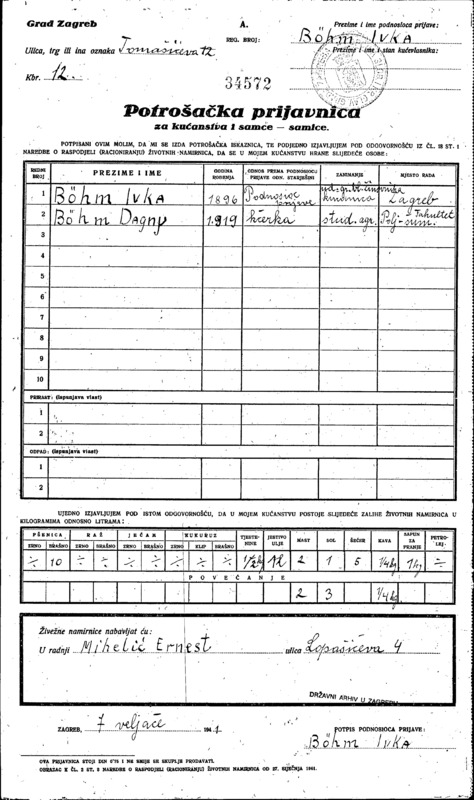 Grad Zagreb
A.
Prezime i ime podnosioca prijave:
REG. BROJ:
Böhm Ivka
Ulica, trg ili ina oznaka Tomašićeva 12
Prezime i ime i stan kućevlasnika:
Kbr. 12.
34572
Potrošačka prijavnica
za kućanstva i samce — samice.
POTPISANI OVIM MOLIM, DA MI SE IZDA POTROŠAČKA ISKAZNICA, TE PODJEDNO IZJAVLJUJEM POD ODGOVORNOŠĆU IZ ČL. 18 ST. 1
NAREDBE O RASPODJELI (RACIONIRANJU) ŽIVOTNIH NAMIRNICA, DA SE U MOJEM KUĆANSTVU HRANE SLIJEDEĆE OSOBE:
REDNI BROJ PREZIME I IME GODINA ROĐENJA ODNOS PREMA PODNOSIOCU PRIJAVE ODN. STARJEŠINI ZANIMANJE MJESTO RADA
1 Böhm Ivka 1896 Podnosioc prijave ud. gr. činovnika kućanica Zagreb
2 Böhm Dagny 1919 kćerka stud. agr. Polj.-šum. Fakultet
3
4
5
6
7
8
9
10
PRIRAST: (Ispunjava vlast)
1
2
OTPAD: (Ispunjava vlast)
1
2
UJEDNO IZJAVLJUJEM POD ISTOM ODGOVORNOŠĆU, DA U MOJEM KUĆANSTVU POSTOJE SLIJEDEĆE ZALIHE ŽIVOTNIH NAMIRNICA U
KILOGRAMIMA ODNOSNO LITRAMA:
PŠENICA RAŽ JEČAM KUKURUZ TJESTENINE JESTIVO ULJE MAST SOL ŠEĆER KAVA SAPUN ZA PRANJE PETROLEJ
ZRNO BRAŠNO ZRNO BRAŠNO ZRNO BRAŠNO ZRNO KLIP BRAŠNO
÷ 10 ÷ ÷ ÷ ÷ ÷ ÷ ÷ 1/2 kg 1 l 2 1 5 1/4 kg 1 kg ÷
POVEĆANJE
2 3 1/4 kg
Živežne namirnice nabavljat ću:
U radnji Mihelić Ernest ulica Lopašićeva 4
DRŽAVNI ARHIV U ZAGREBU
ZAGREB, 7 veljače 1941
POTPIS PODNOSIOCA PRIJAVE:
Böhm Ivka
OVA PRIJAVNICA STOJI DIN 0'75 I NE SMIJE SE SKUPLJE PRODAVATI.
OBRAZAC K ČL. 2 ST. 5 NAREDBE O RASPODJELI (RACIONIRANJU) ŽIVOTNIH NAMIRNICA OD 27. SIJEČNJA 1941.